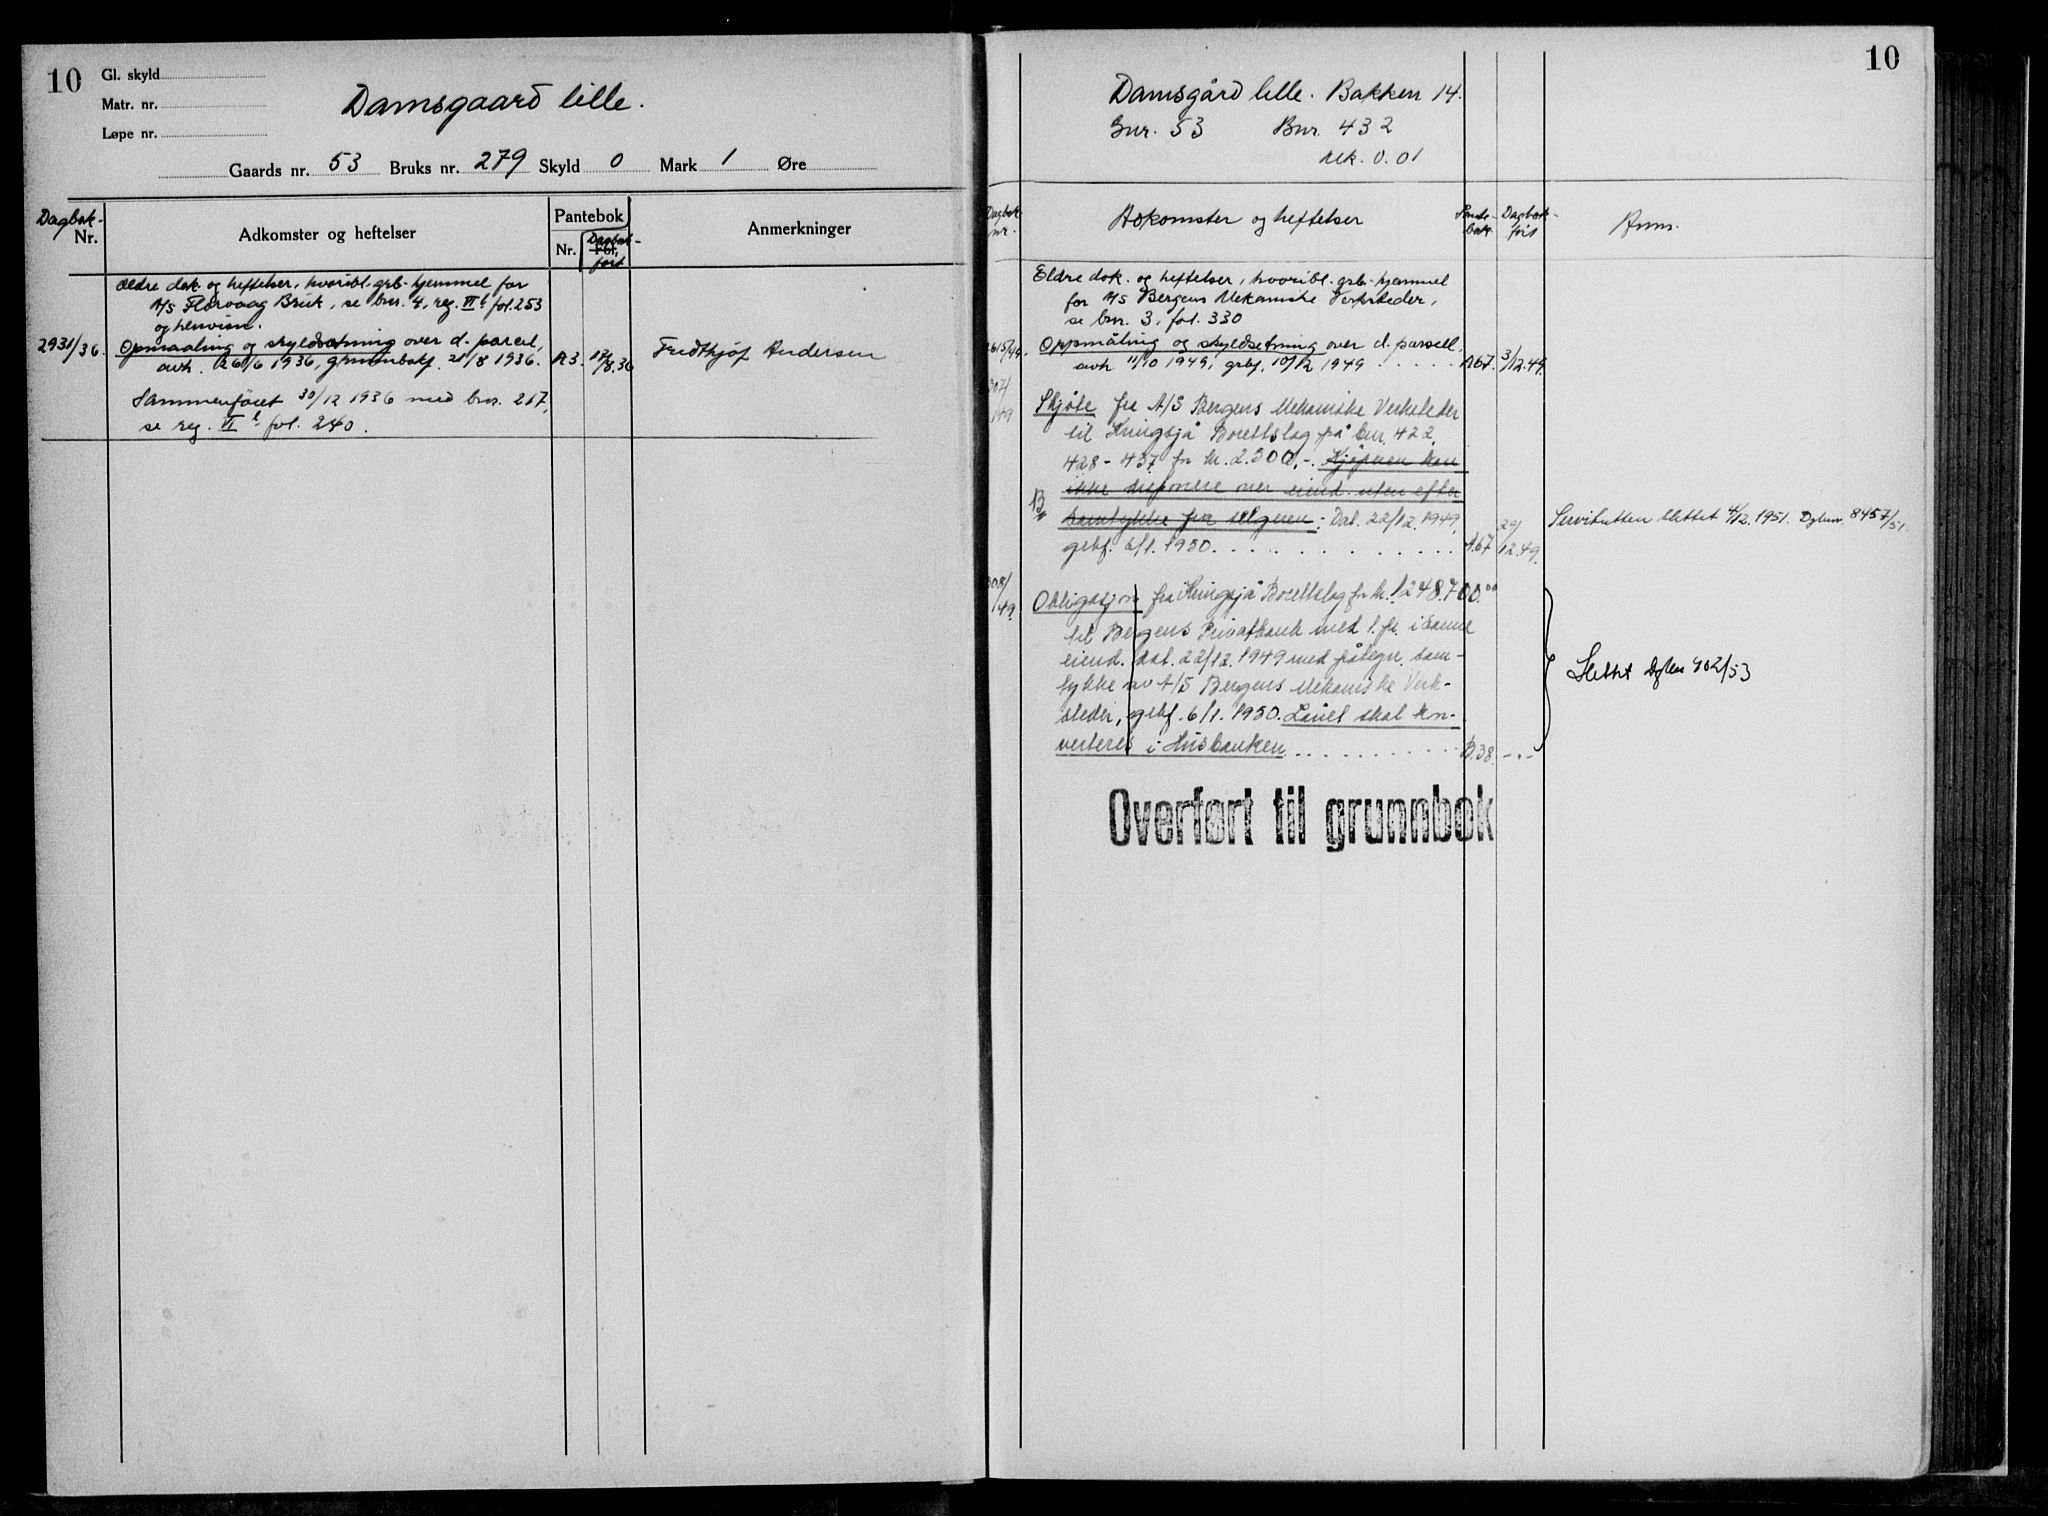 10
Gl. skyld
Matr. nr.
Løpe nr.
Damsgaard lille.
Gaards nr. 53 Bruks nr. 279 Skyld 0 Mark 1 Øre
Dagbok-
Nr.
Adkomster og heftelser
Pantebok
Nr.
Dagbok-
Fol.
ført
Anmerkninger
Ældre dok. og heftelser, hvoribl. grb. hjemmel for
A/S Florvaag Bruk, se bnr. 4, reg. VI b fol. 253
og henvisn.
2931/36. Opmaaling og skyldsætning over d. parcel,
avh. 26/6 1936, grunnbokf. 21/8 1936. A3. 17/8.36 Fredthjof Andersen
Sammenføiet 30/12 1936 med bnr. 217,
se reg. VI fol. 240.
10
Damsgård lille. Bakken 14.
Gnr. 53 Bnr. 432
Mk. 0.01
Dagbok-
nr.
Adkomster og heftelser
Pante-
bok.
Dagbok-
ført
Anm.
Eldre dok. og heftelser, hvoribl. grb. hjemmel
for A/S Bergens Mekaniske Verksteder,
se bnr. 3, fol. 330
2615/49. Oppmåling og skyldsetning over d. parsell,
avh. 11/10 1949, grbf. 10/12 1949 . . . . . A67. 3/12.49.
307/49 Skjøte fra A/S Bergens Mekaniske Verksteder
til Kringsjå Borettslag på bnr. 422,
428 - 437 for kr. 2.300,-. Kjøperen kan
ikke disponere over eiend. uten efter
samtykke fra selgeren: Dat. 22/12.1949,
grbf. 6/1.1950. . . . . . . . . . . . A.67 29/12.49.
Servitutten slettet 4/12.1951. Dgbnr. 8457/51.
308/49. Obligasjon fra Kringsjå Borettslag for kr. 1248.700.00
til Bergens Privatbank med 1. pr. i samme
eiend. dat. 22/12.1949 med påtegn. sam-
tykke av A/S Bergens Mekaniske Verk-
steder, grbf. 6/1.1950. Lånet skal kon-
verteres i Husbanken . . . . . . . . . B.38. -"-
Slettet Dgbnr 402/53
Overført til grunnbok